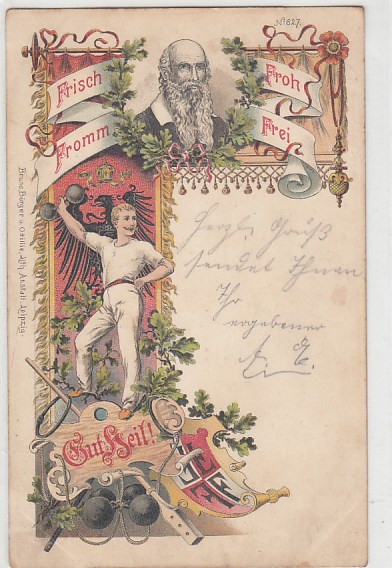 No 627.
Frisch
Froh
Fromm
Frei
Bruno Bürger u. Ottillie, Lith. Anstalt. Leipzig.
Herzl. Gruß
sendet Ihnen
Ihr
ergebener
Gut Heil!